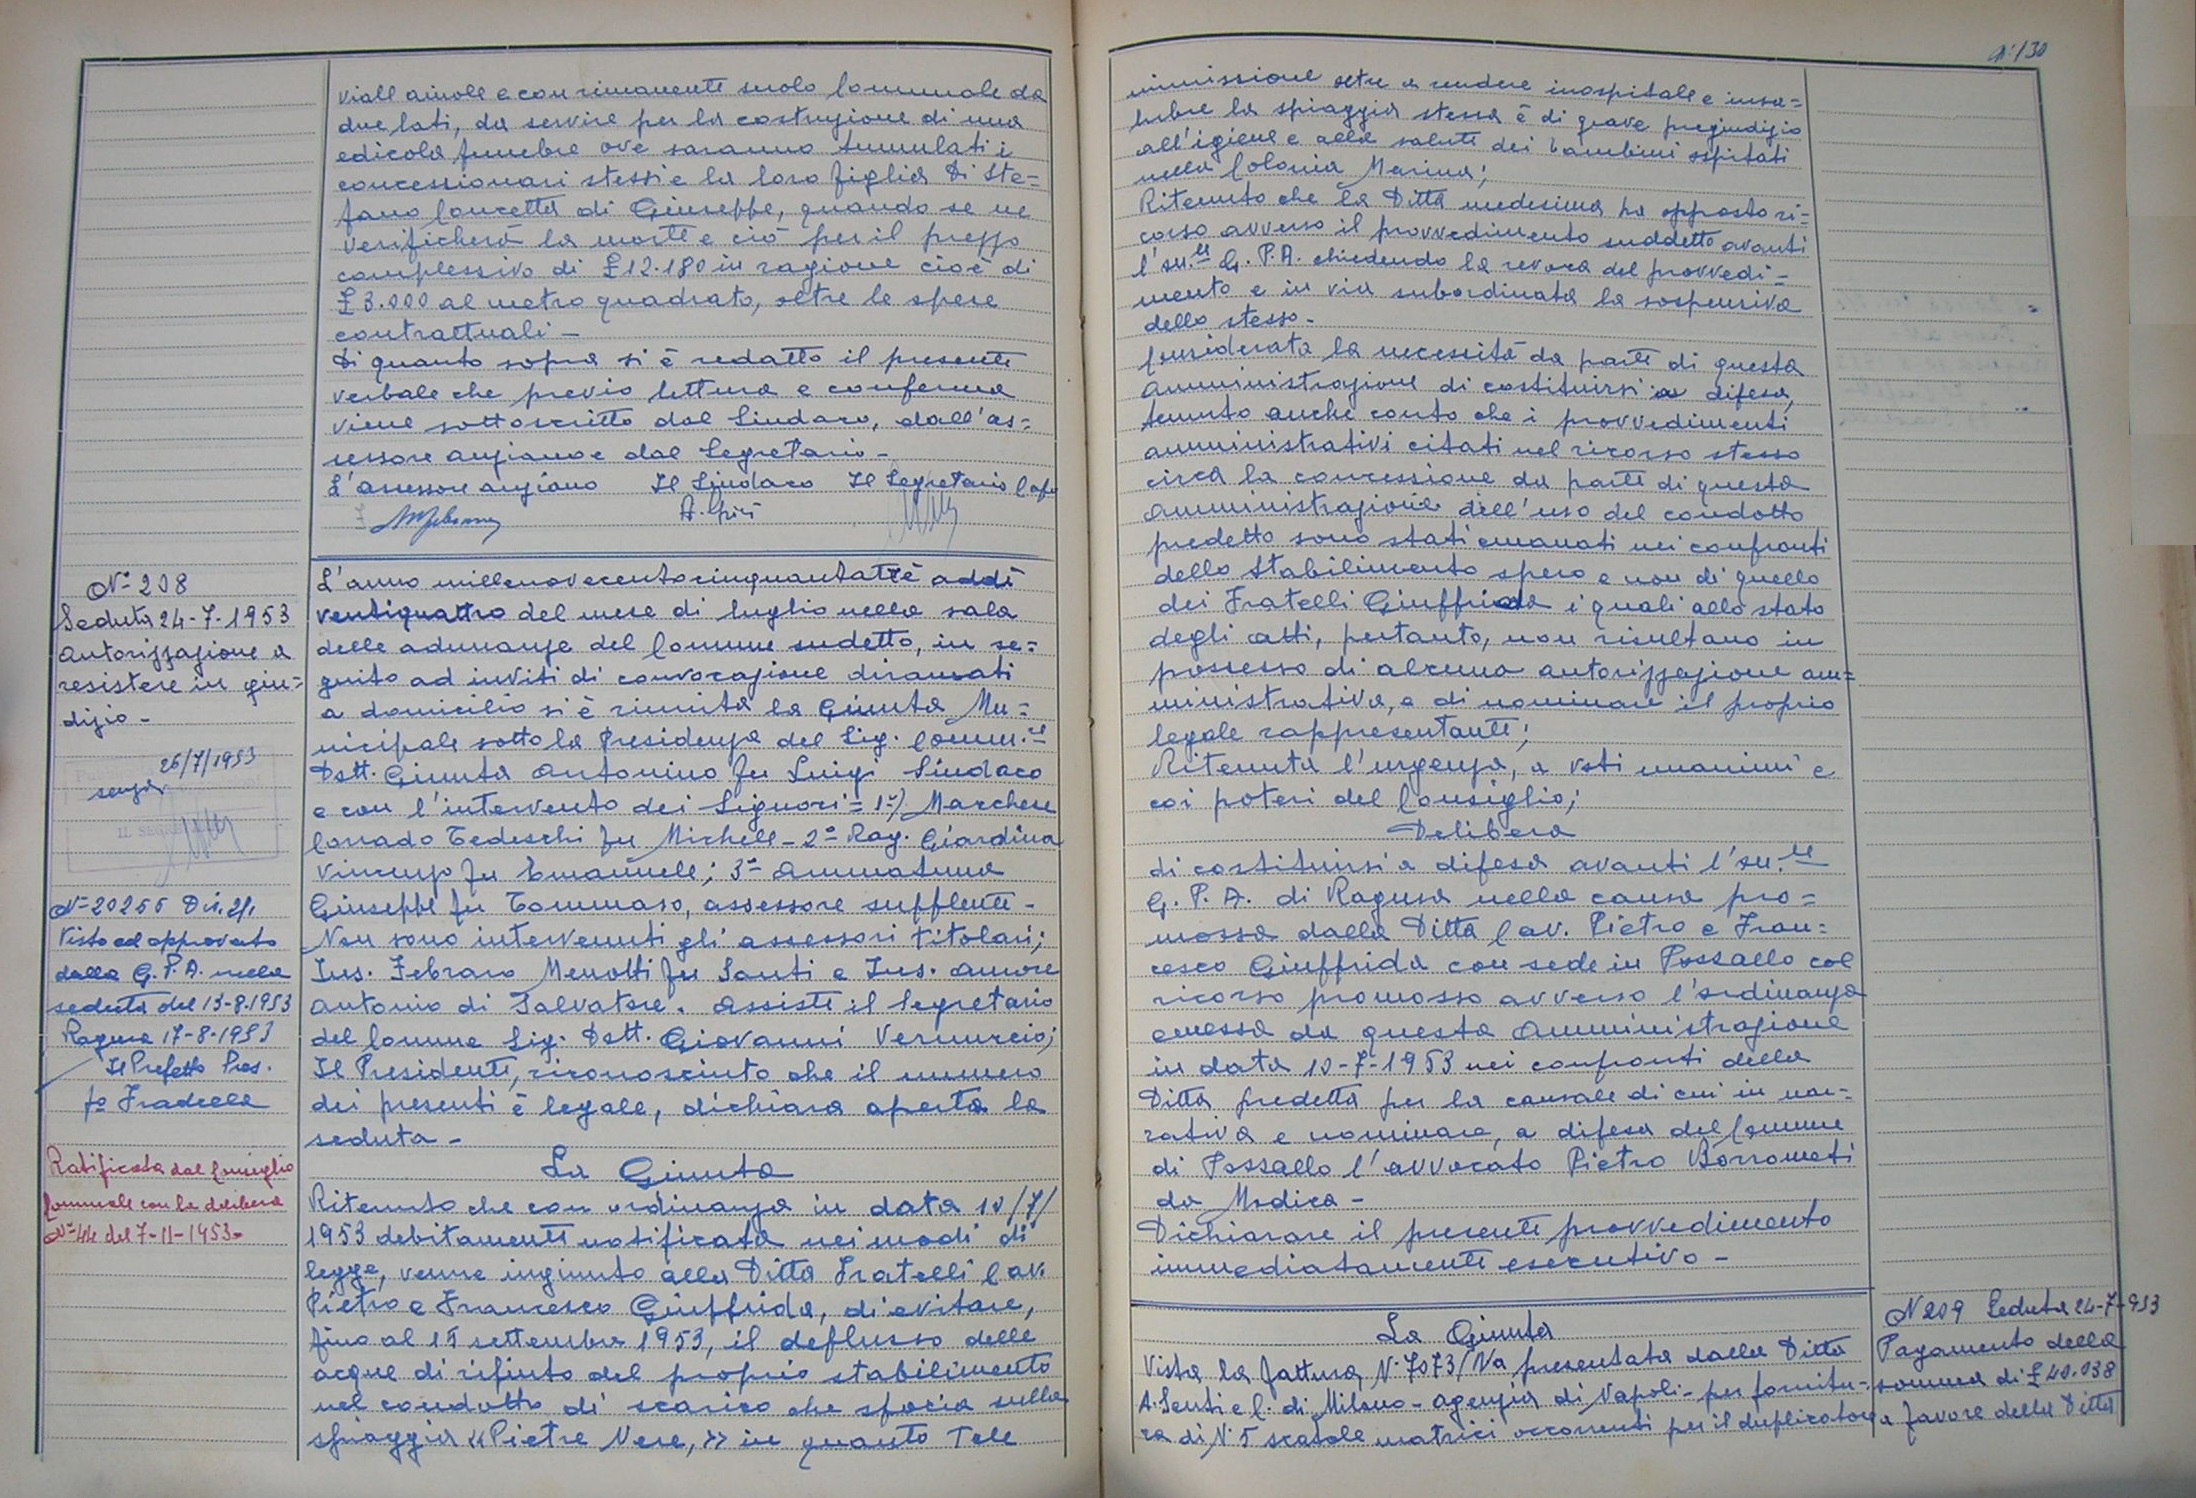 viali aiuole e con rimanente suolo Comunale da
due lati, da servire per la costruzione di una
edicola funebre ove saranno tumulati i
concessionari stessi e la loro figlia Di Ste=
fano Concetta di Giuseppe, quando se ne
verificherà la morte e ciò per il prezzo
complessivo di £ 12.180 in ragione cioè di
£ 3.000 al metro quadrato, oltre le spese
contrattuali -
Di quanto sopra si è redatto il presente
verbale che previo lettura e conferma
viene sottoscritto dal Sindaco, dall'as=
sessore anziano e dal Segretario -
L'assessore anziano Il Sindaco Il Segretario Capo
N° 208
Seduta 24-7-1953
Autorizzazione a
resistere in giu=
dizio -
26/7/1953
senza
IL SEGRE
N° 20255 Div. 2/1
Visto ed approvato
dalla G. P. A. nella
seduta del 13-8-1953
Ragusa 17-8-1953
Il Prefetto Pres.
fo Fradella
Ratificata dal Consiglio
Comunale con la delibera
N° 44 del 7-11-1953-
L'anno millenovecentocinquantatrè addì
ventiquattro del mese di luglio nella sala
delle adunanze del Comune sudetto, in se=
guito ad inviti di convocazione diramati
a domicilio si è riunita la Giunta Mu=
nicipale sotto la Presidenza del Sig. Comm.re
Dott. Giunta Antonino fu Luigi Sindaco
e con l'intervento dei Signori = 1°) Marchese
Corrado Tedeschi fu Michele - 2° Rag. Giardina
Vincenzo fu Emanuele; 3° Ammatuna
Giuseppe fu Tommaso, assessore supplente -
Non sono intervenuti gli assessori titolari;
Ins. Febraro Menotti fu Santi e Ins. Amore
Antonio di Salvatore. Assiste il Segretario
del Comune Sig. Dott. Giovanni Vernuccio;
Il Presidente, riconosciuto che il numero
dei presenti è legale, dichiara aperta la
seduta -
La Giunta
Ritenuto che con ordinanza in data 10/7/
1953 debitamente notificata nei modi di
legge, venne ingiunto alla Ditta Fratelli Cav.
Pietro e Francesco Giuffrida, di evitare,
fino al 15 settembre 1953, il deflusso delle
acque di rifiuto del proprio stabilimento
nel condotto di scarico che sfocia sulla
spiaggia « Pietre Nere, » in quanto Tale
130
immissione oltre a rendere inospitale e insa=
lubre la spiaggia stessa è di grave pregiudizio
all'igiene e alla salute dei bambini ospitati
nella Colonia Marina;
Ritenuto che la Ditta medesima ha opposto ri=
corso avverso il provvedimento suddetto avanti
l'on.le G. P. A. chiedendo la revoca del provvedi=
mento e in via subordinata la sospensiva
dello stesso -
Considerata la necessità da parte di questa
Amministrazione di costituirsi a difesa,
tenuto anche conto che i provvedimenti
amministrativi citati nel ricorso stesso
circa la concessione da parte di questa
Amministrazione dell'uso del condotto
predetto sono stati emanati nei confronti
dello Stabilimento Spero e non di quello
dei Fratelli Giuffrida i quali allo stato
degli atti, pertanto, non risultano in
possesso di alcuna autorizzazione am=
ministrativa, e di nominare il proprio
legale rappresentante;
Ritenuta l'urgenza, a voti unanimi e
coi poteri del Consiglio;
Delibera
di costituirsi a difesa avanti l'on.le
G. P. A. di Ragusa nella causa pro=
mossa dalla Ditta Cav. Pietro e Fran=
cesco Giuffrida con sede in Pozzallo col
ricorso promosso avverso l'ordinanza
emessa da questa Amministrazione
in data 10-7-1953 nei confronti della
Ditta predetta per la causale di cui in nar=
rativa e nominare, a difesa del Comune
di Pozzallo l'avvocato Pietro Borrometi
da Modica -
Dichiarare il presente provvedimento
immediatamente esecutivo -
La Giunta
Vista la fattura N. 7073/Na presentata dalla Ditta
A. Senti e C. di Milano - Agenzia di Napoli - per fornitu=
ra di N. 5 scatole matrici occorrenti per il duplicatore
N 209 Seduta 24-7-953
Pagamento della
somma di £ 40.038
a favore della Ditta